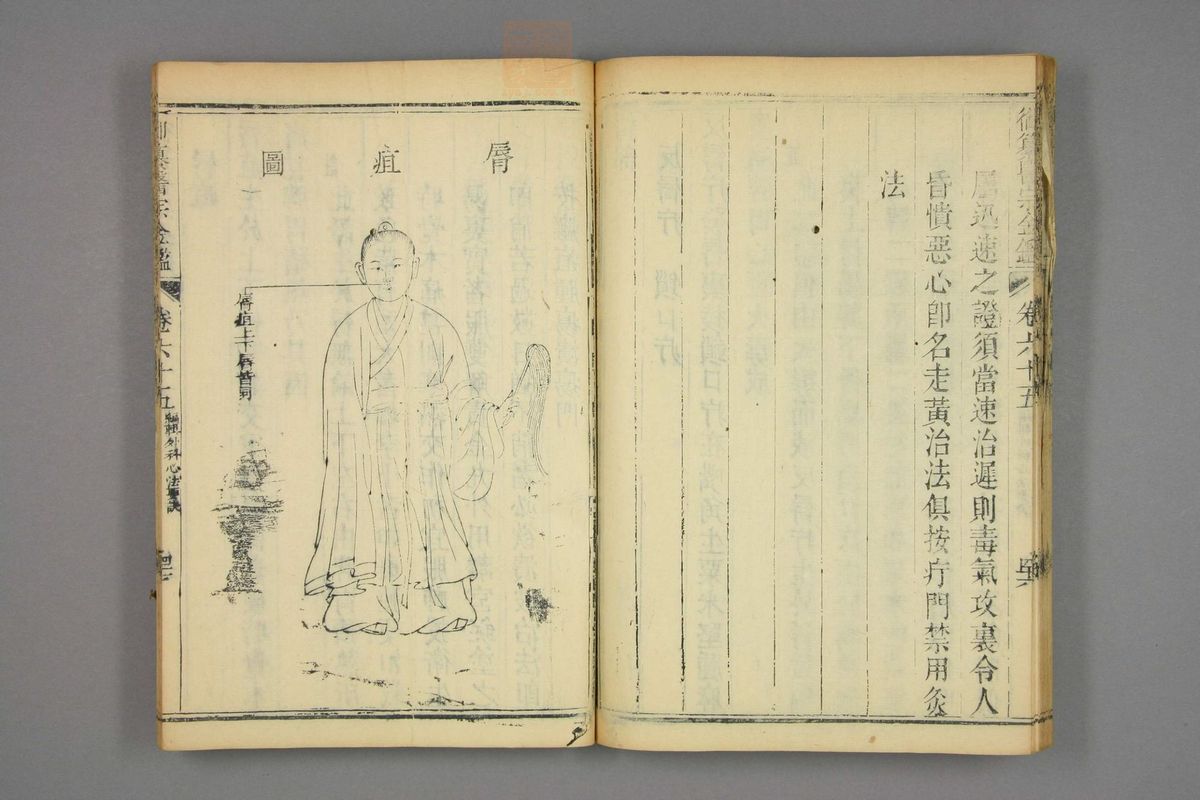 御纂醫宗金鑑
卷六十五
屬迅速之證須當速治遲則毒氣攻裏令人
昏憒惡心即名走黃治法俱按疔門禁用灸
法
脣疽圖
脣疽上下脣皆同
御纂醫宗金鑑
卷六十五
編輯外科心法要訣